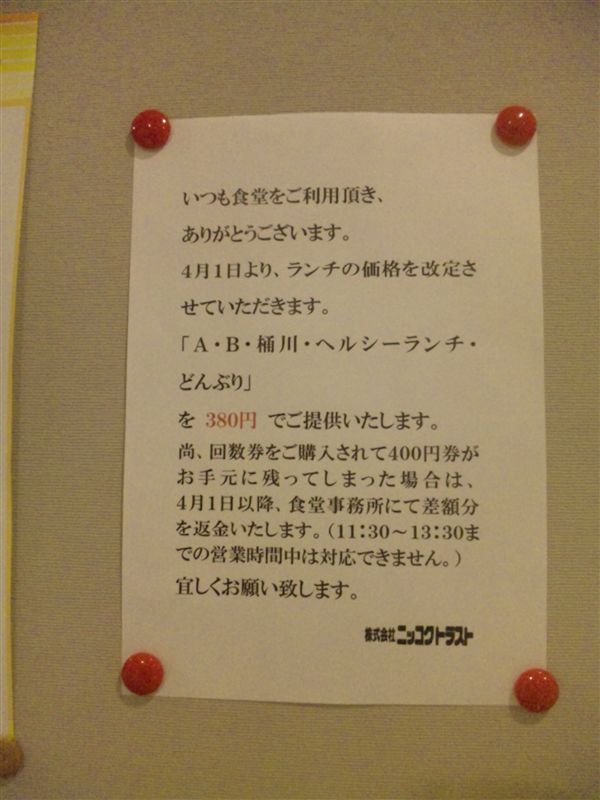 いつも食堂をご利用頂き、
ありがとうございます。
4月1日より、ランチの価格を改定さ
せていただきます。
「A・B・桶川・ヘルシーランチ・
どんぶり」
を 380円 でご提供いたします。
尚、回数券をご購入されて400円券が
お手元に残ってしまった場合は、
4月1日以降、食堂事務所にて差額分
を返金いたします。(11:30〜13:30ま
での営業時間中は対応できません。)
宜しくお願い致します。
株式会社ニッコクトラスト